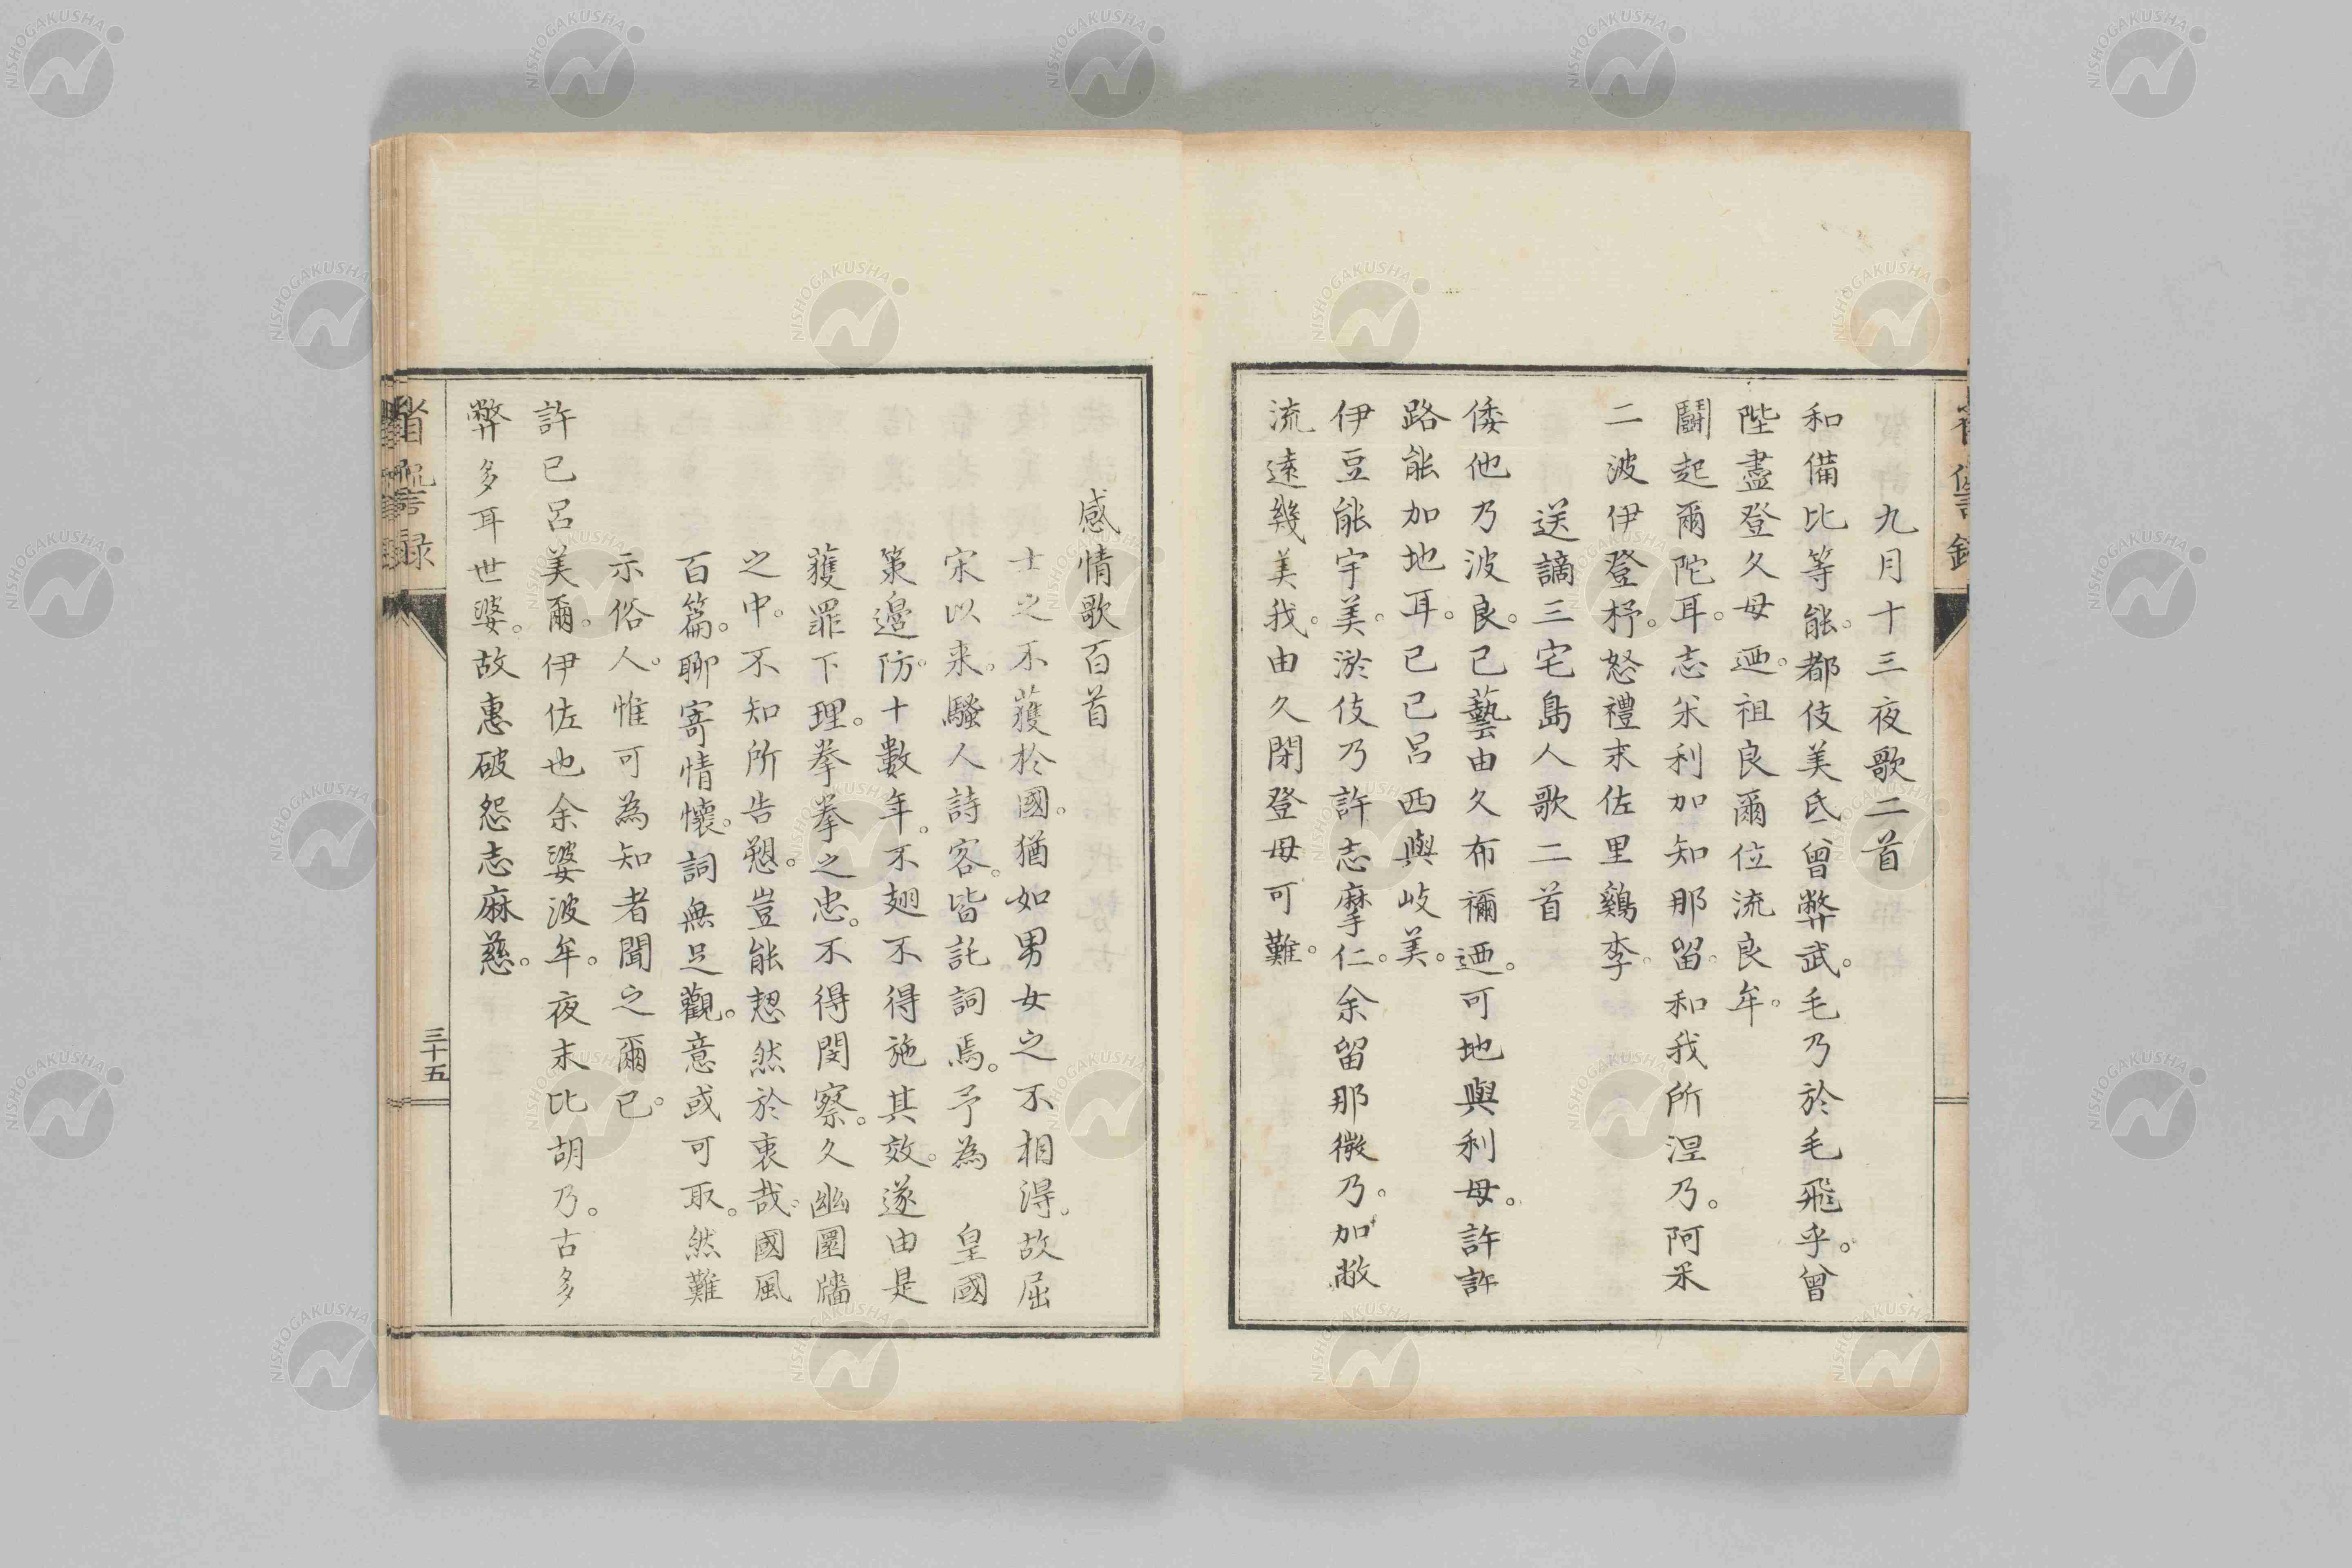 九月十三夜歌二首
和備比等能。都伎美氐曾弊武。毛乃於毛飛乎。曾
陛盡登久母迺。祖良爾位流良牟。
鬪起爾陀耳。志米利加知那留。和我所涅乃。阿米
二波伊登杼。怒禮末佐里鷄李。
送謫三宅島人歌二首
倭他乃波良。己藝由久布禰迺。可地與利母。許許
路能加地耳。己己呂西與岐美。
伊豆能宇美。淤伎乃許志摩仁。余留那微乃。加敝
流遠幾美我。由久閇登母可難。
感情歌百首
士之不獲於國。猶如男女之不相得。故屈
宋以来。騷人詩客。皆託詞焉。予為 皇國
策邊防。十數年。不翅不得施其效。遂由是
獲罪下理。拳拳之忠。不得閔察。久幽圜牆
之中。不知所告愬。豈能恝然於衷哉。國風
百篇。聊寄情懷。詞無足觀。意或可取。然難
示俗人。惟可為知者聞之爾已。
許已呂美爾。伊佐也余婆波牟。夜末比胡乃。古多
弊多耳世婆。故惠破怨志麻慈。
省諐録
三十五